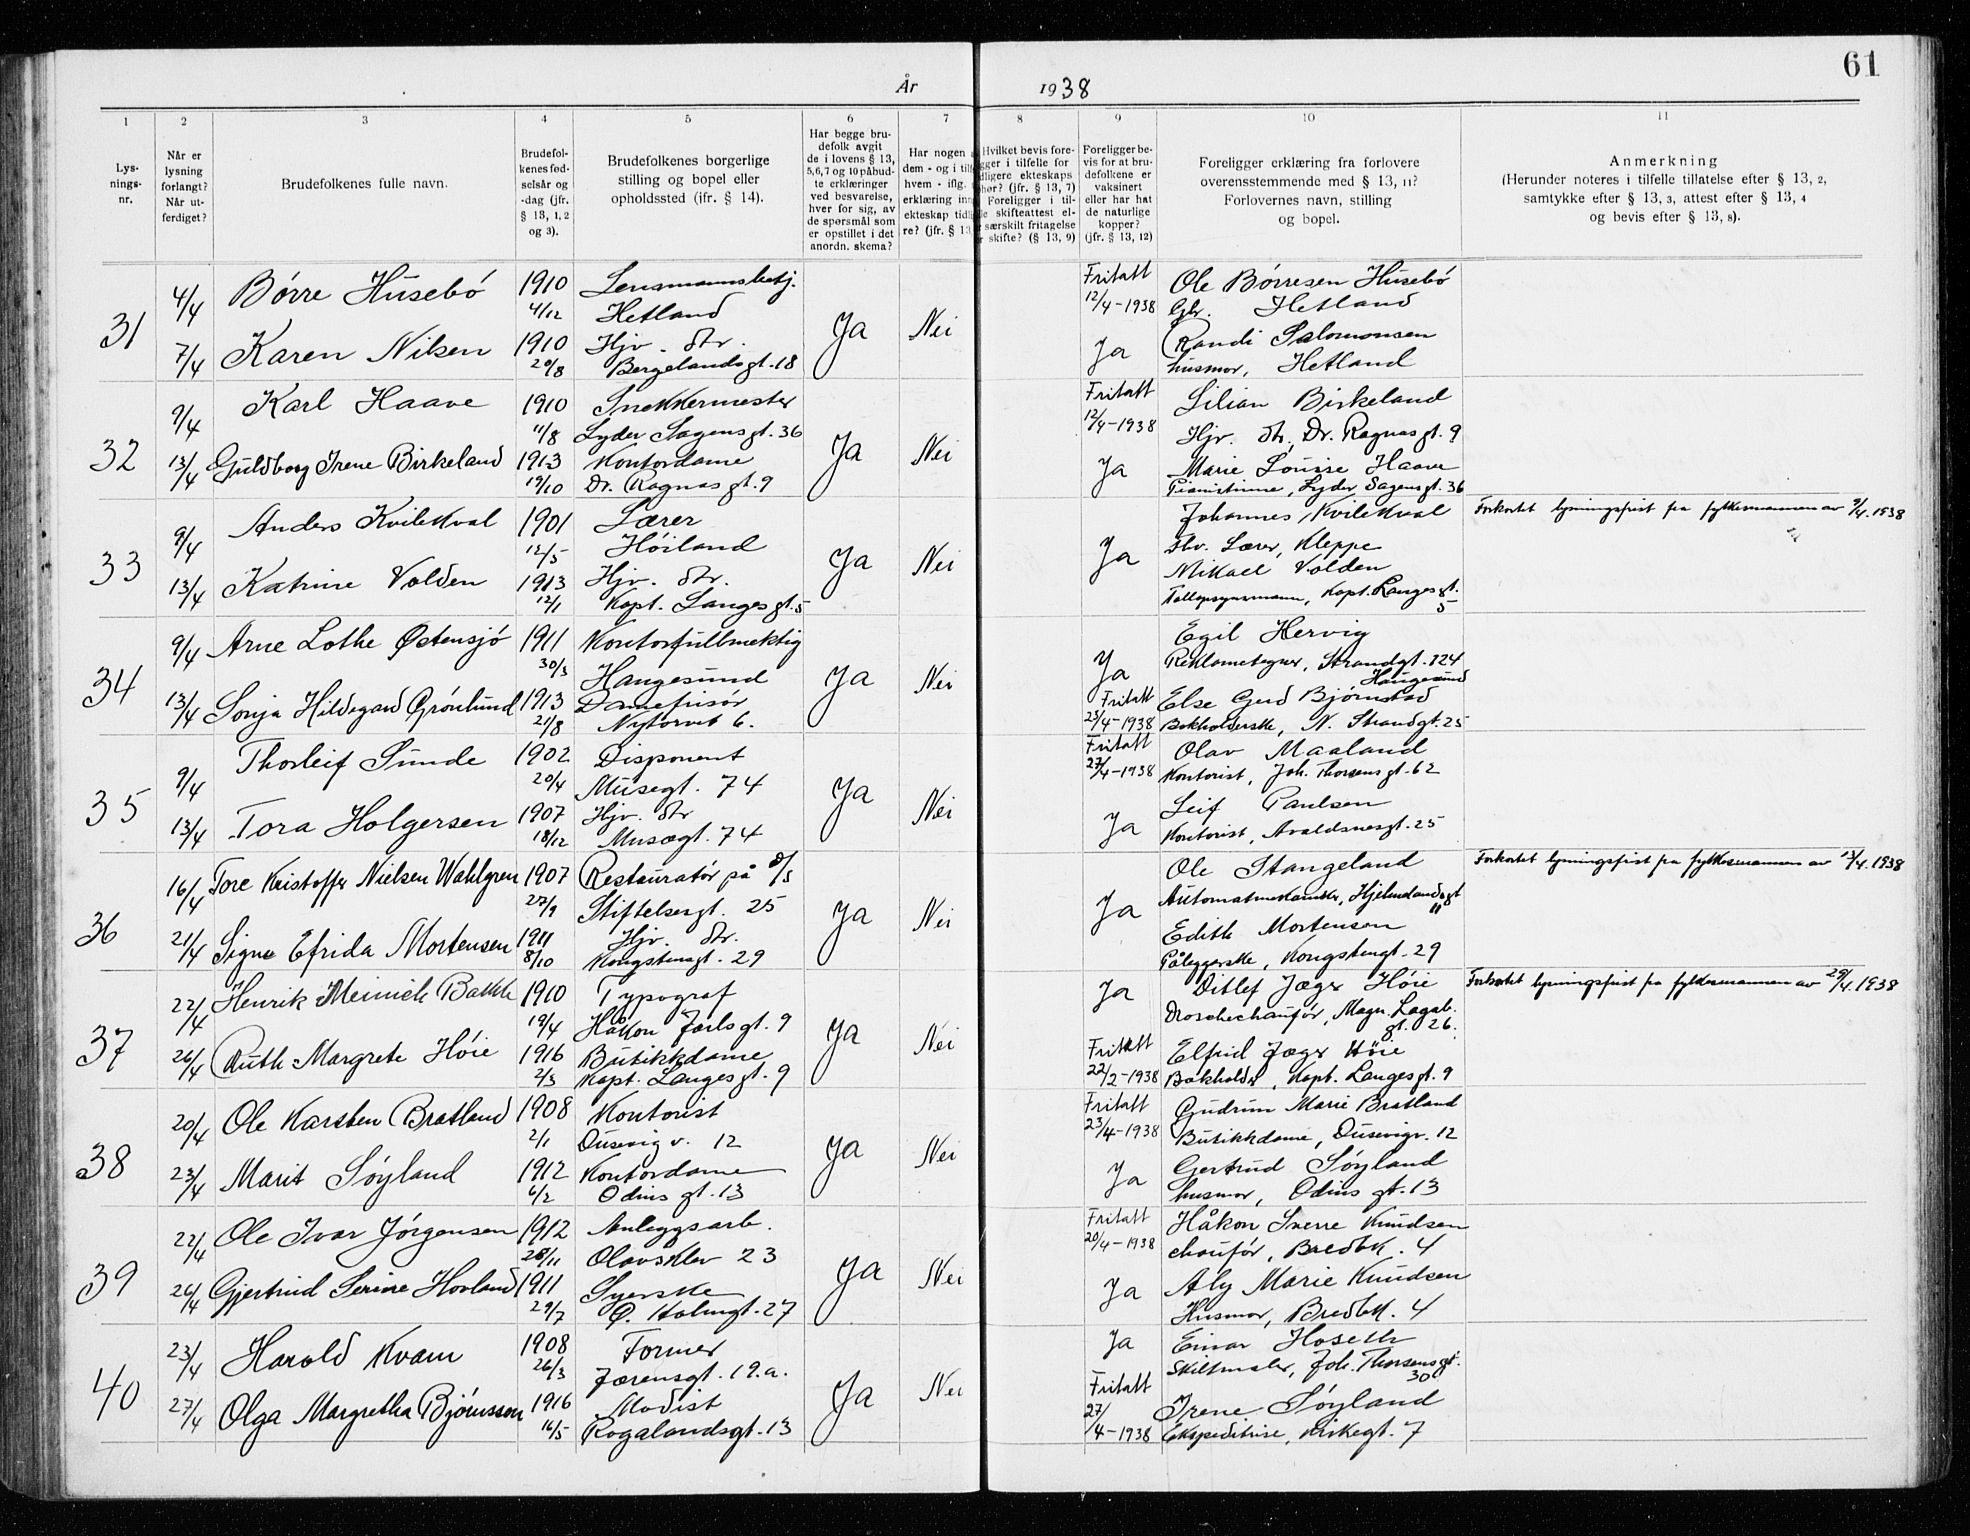 61
År 1938
1 2 3 4 5 6 7 8 9 10 11
Lys-
nings-
nr.
Når er
lysning
forlangt?
Når ut-
ferdiget?
Brudefolkenes fulle navn.
Brudefol-
kenes fød-
selsår og
-dag (jfr.
§ 13, 1, 2
og 3).
Brudefolkenes borgerlige
stilling og bopel eller
opholdssted (jfr. § 14).
Har begge bru-
defolk avgit
de i lovens § 13,
5,6,7 og 10 påbud-
te erklæringer
ved besvarelse,
hver for sig, av
de spørsmål som
er opstillet i det
anordn. skema?
Har nogen a
dem - og i tilf
hvem - iflg.
erklæring inn
ekteskap tidli
re? (jfr. § 13
Hvilket bevis fore-
gger i tilfelle for
dligere ekteskaps
phør? (jfr. § 13, 7)
Foreligger i til-
le skifteattest el-
særskilt fritagelse
r skifte? (§ 13, 9)
Foreligger be-
vis for at bru-
defolkene er
vaksinert
eller har hat
de naturlige
kopper?
(jfr. § 13, 12)
Foreligger erklæring fra forlovere
overensstemmende med § 13, 11?
Forlovernes navn, stilling
og bopel.
Anmerkning
(Herunder noteres i tilfelle tillatelse efter § 13, 2,
samtykke efter § 13, 3, attest efter § 13, 4
og bevis efter § 13, 8).
31
4/4 Børre Husebø 1910 4/12 Lensmannsbetj.
Hetland
7/4 Karen Nilsen 1910 20/8 Hjv. dtr.
Bergelandsgt. 18
Ja Nei
Fritatt
12/4-1938
Ja
Ole Børresen Husebø
Gbr. Hetland
Randi Salomonsen
husmor, Hetland
32
9/4 Karl Haave 1910 11/8 Snekkermester
Lyder Sagens gt. 36
13/4 Guldborg Irene Birkeland 1913 19/10 Kontordame
Dr. Ragnas gt. 9
Ja Nei
Fritatt
12/4-1938
Ja
Lilian Birkeland
Hjv. dtr. Dr. Ragnas gt. 9
Marie Louise Haave
Pianistinne, Lyder Sagens gt. 36
33
9/4 Anders Kvilekval 1901 12/5 Lærer
Høiland
13/4 Katrine Volden 1913 12/1 Hjv. dtr.
Kapt. Langes gt. 5
Ja Nei
Ja
Johannes Kvilekval
fhv. Lærer, Kleppe
Mikael Volden
Tollopsynsmann, Kapt. Langes gt.
5
Forkortet lysningsfrist fra fylkesmannen av 9/4. 1938
34
9/4 Arne Lothe Østensjø 1911 30/3 Kontorfullmektig
Haugesund
13/4 Sonja Hildegard Grønlund 1913 21/8 Damefrisør
Nytorvet 6.
Ja Nei
Ja
Fritatt
23/4-1938
Egil Hervig
Reklametegner, Strandgt. 124
Haugesund
Else Gerd Bjørnstad
Bokholderske, N. Strandgt. 25
35
9/4 Thorleif Sunde 1902 20/4 Disponent
Musegt. 74
13/4 Tora Holgersen 1907 18/12 Hjv. dtr
Musegt. 74
Ja Nei
Fritatt
27/4-1938
Ja
Olav Maaland
Kontorist, Joh. Thorsens gt. 62
Leif Paulsen
Kontorist, Avaldsnesgt. 25
36
16/4 Tore Kristoffer Nielsen Wahlgren 1907 27/9 Restauratør på D/S
Stiftelsesgt. 25
21/4 Signe Efrida Mortensen 1911 8/10 Hjv. dtr.
Kongstensgt. 29
Ja Nei
Ja
Ole Stangeland
Automatmekaniker, Hjelmelandsgt
11
Edith Mortensen
Påleggerske, Kongstengt. 29
Forkortet lysningsfrist fra fylkesmannen av 13/4. 1938
37
22/4 Henrik Meinich Bakke 1910 19/4 Typograf
Håkon Jarls gt. 9
26/4 Ruth Margrete Høie 1916 2/3 Butikkdame
Kapt. Langes gt. 9
Ja Nei
Ja
Fritatt
22/2-1938
Ditlef Jæger Høie
Droschechauffør, Magn. Lagab.
gt. 26.
Elfrid Jæger Høie
Bokholder, Kapt. Langes gt. 9
Forkortet lysningsfrist fra fylkesmannen av 29/4. 1938
38
20/4 Ole Karsten Bratland 1908 2/1 Kontorist
Dusevig v. 12
23/4 Marit Søyland 1912 6/2 Kontordame
Odins gt. 13
Ja Nei
Fritatt
23/4-1938
Ja
Gudrun Marie Bratland
Butikkdame, Dusevigv. 12
Gertrud Søyland
husmor, Odins gt. 13
39
22/4 Ole Ivar Jørgensen 1912 28/11 Anleggsarb.
Olavsklev 23
26/4 Gjertrud Serine Hovland 1911 29/7 Syerske
Ø. Holmgt. 27
Ja Nei
Fritatt
20/4-1938
Ja
Håkon Sverre Knudsen
chauffør, Bredbk. 4
Aly Marie Knudsen
Husmor, Bredbk. 4
40
23/4 Harald Kvam 1908 26/3 Former
Jærensgt. 19.a.
27/4 Olga Margretha Bjørnsson 1916 16/5 Modist
Rogalandsgt. 13
Ja Nei
Ja
Fritatt
27/4-1938
Einar Hoseth
Skiltmaler, Joh. Thorsens gt.
30
Irene Søyland
Ekspeditrise, Kirkegt. 7